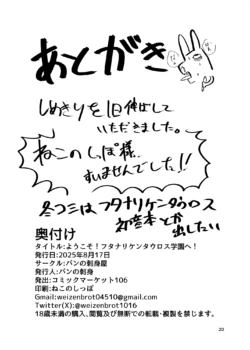 あとがき
しめきりを1日伸ばして
いただきました。
ねこのしっぽ様
すいませんでした!!
冬コミはフタナリケンタウロス
初音本とか
出したい
奥付け
タイトル:ようこそ!フタナリケンタウロス学園へ!
発行日:2025年8月17日
サークル:パンの刺身屋
発行人:パンの刺身
発出:コミックマーケット106
印刷:ねこのしっぽ
Gmail:weizenbrot04510@gmail.com
Twitter(X):@weizenbrot1016
18歳未満の購入、閲覧及び無断での転載・複製を禁じます。
20